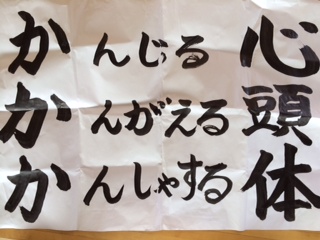 かんじる心
かんがえる頭
かんしゃする体